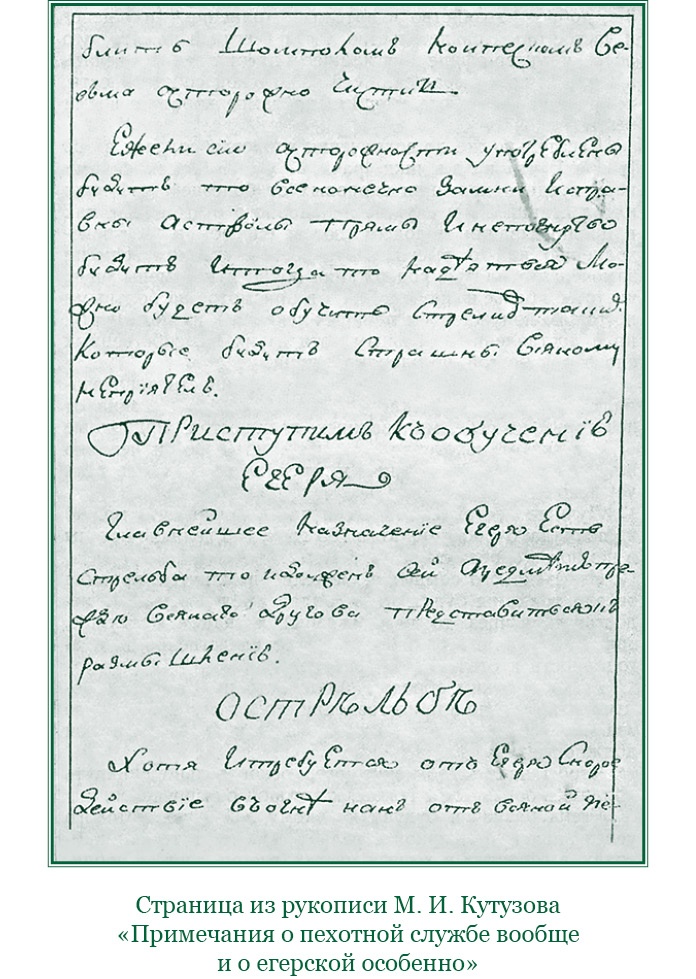 блитъ Шомполомъ
весьма осторожно чистить
Ежели сии осторожности употреблены
будутъ то всеконечно замки исправны
а стволы прямы
будутъ и тогда то надѣятся мо-
жно будетъ обучить стрелять
которые будутъ страшны всякому
неприятелю.
Приступимъ къ обучению
Егеря
Главнейшее назначение Егерю Есть
стрельба то должень сей предметъ пре-
жде всякаго другова представиться къ
размышлению.
О СТРѢЛЬБѢ
Хотя и требуется отъ Егеря скорое
действïе въ огнѣ какъ отъ всякой пе-
Страница из рукописи М. И. Кутузова
«Примечания о пехотной службе вообще
и о егерской особенно»